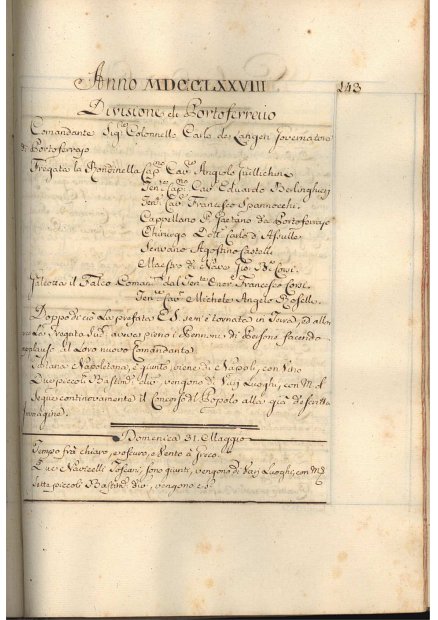 Anno MDCCLXXVIII 143
Divisione di Portoferraio
Comandante Sigre Colonnello Carlo de Langeti Governatore
di Portoferrajo
Fregata la Rondinella Capno Cavr Angiolo
Tente Capno Cavr Eduardo Berlinghieri
Tente Cavr Francesco Spannocchi
Cappellano P. Gaetano da Portoferrajo
Chirurgo Dotte Carlo d'
Scrivano Agostino Castelli
Maestro di Nave Gio Bta Corsi
Galeotta il Falco Comandta dal Tente Francesco Corsi
Tente Cavr Michele Angelo Roselle
Doppo di ciò La prefata E.S. sen'è tornata in Terra, ed
La Fregata Sude aveva pieno i Pennoni di Persone facendo
applauso al Loro nuovo Comandante.
Napoletana, è giunto, viene di Napoli, con Vino
piccoli Bastimti due, vengono di Varj Luoghi, con
Segue continovamente il Concorso di Popolo alla già descritta
Immagine.
Domenica 31. Maggio
Tempo frà chiaro, e oscuro, e Vento à Greco.
Due Navicelli Toscani, sono giunti, vengono di Varj Luoghi, con
Sette piccoli Bastimti, vengono